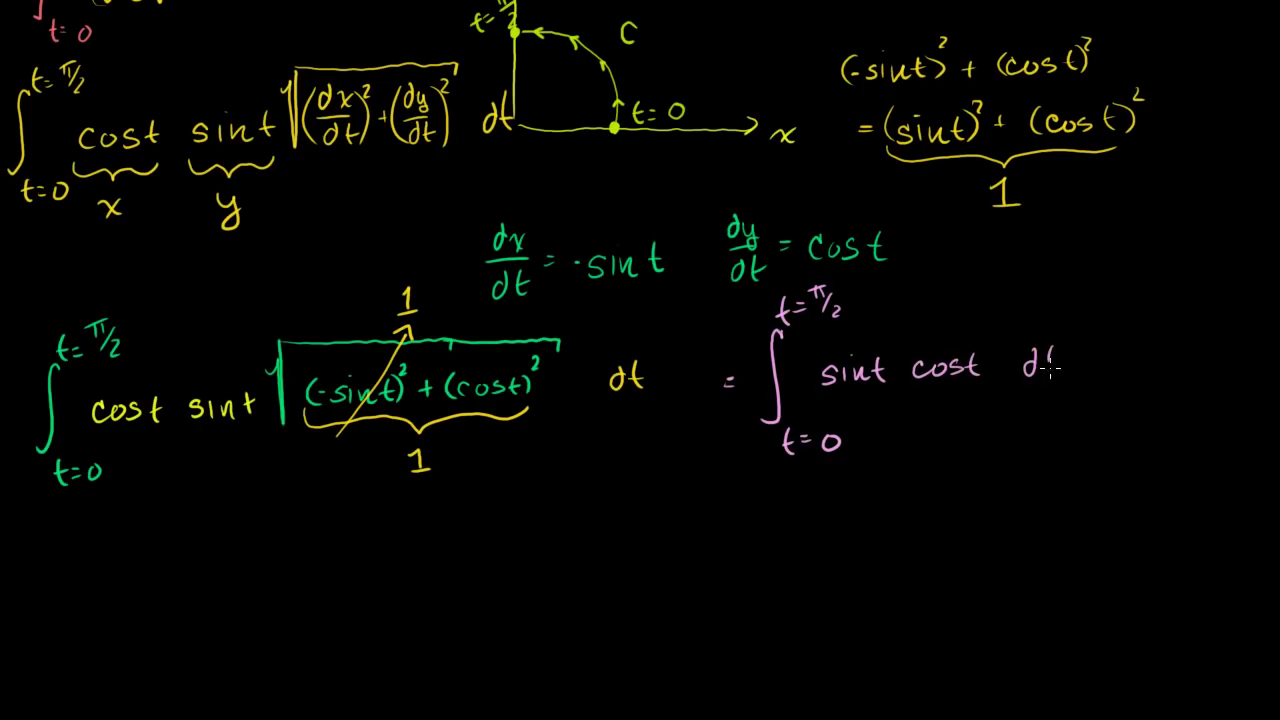 t=0
t=π/2
C
t=π/2
∫ cost sint √((dx/dt)²+(dy/dt)²) dt
t=0
x
y
t=0
x
(-sint)² + (cost)²
= (sint)² + (cost)²
1
dx/dt = -sint
dy/dt = cost
1
t=π/2
∫ cost sint √((-sint)² + (cost)²) dt
t=0
1
t=π/2
= ∫ sint cost dt
t=0